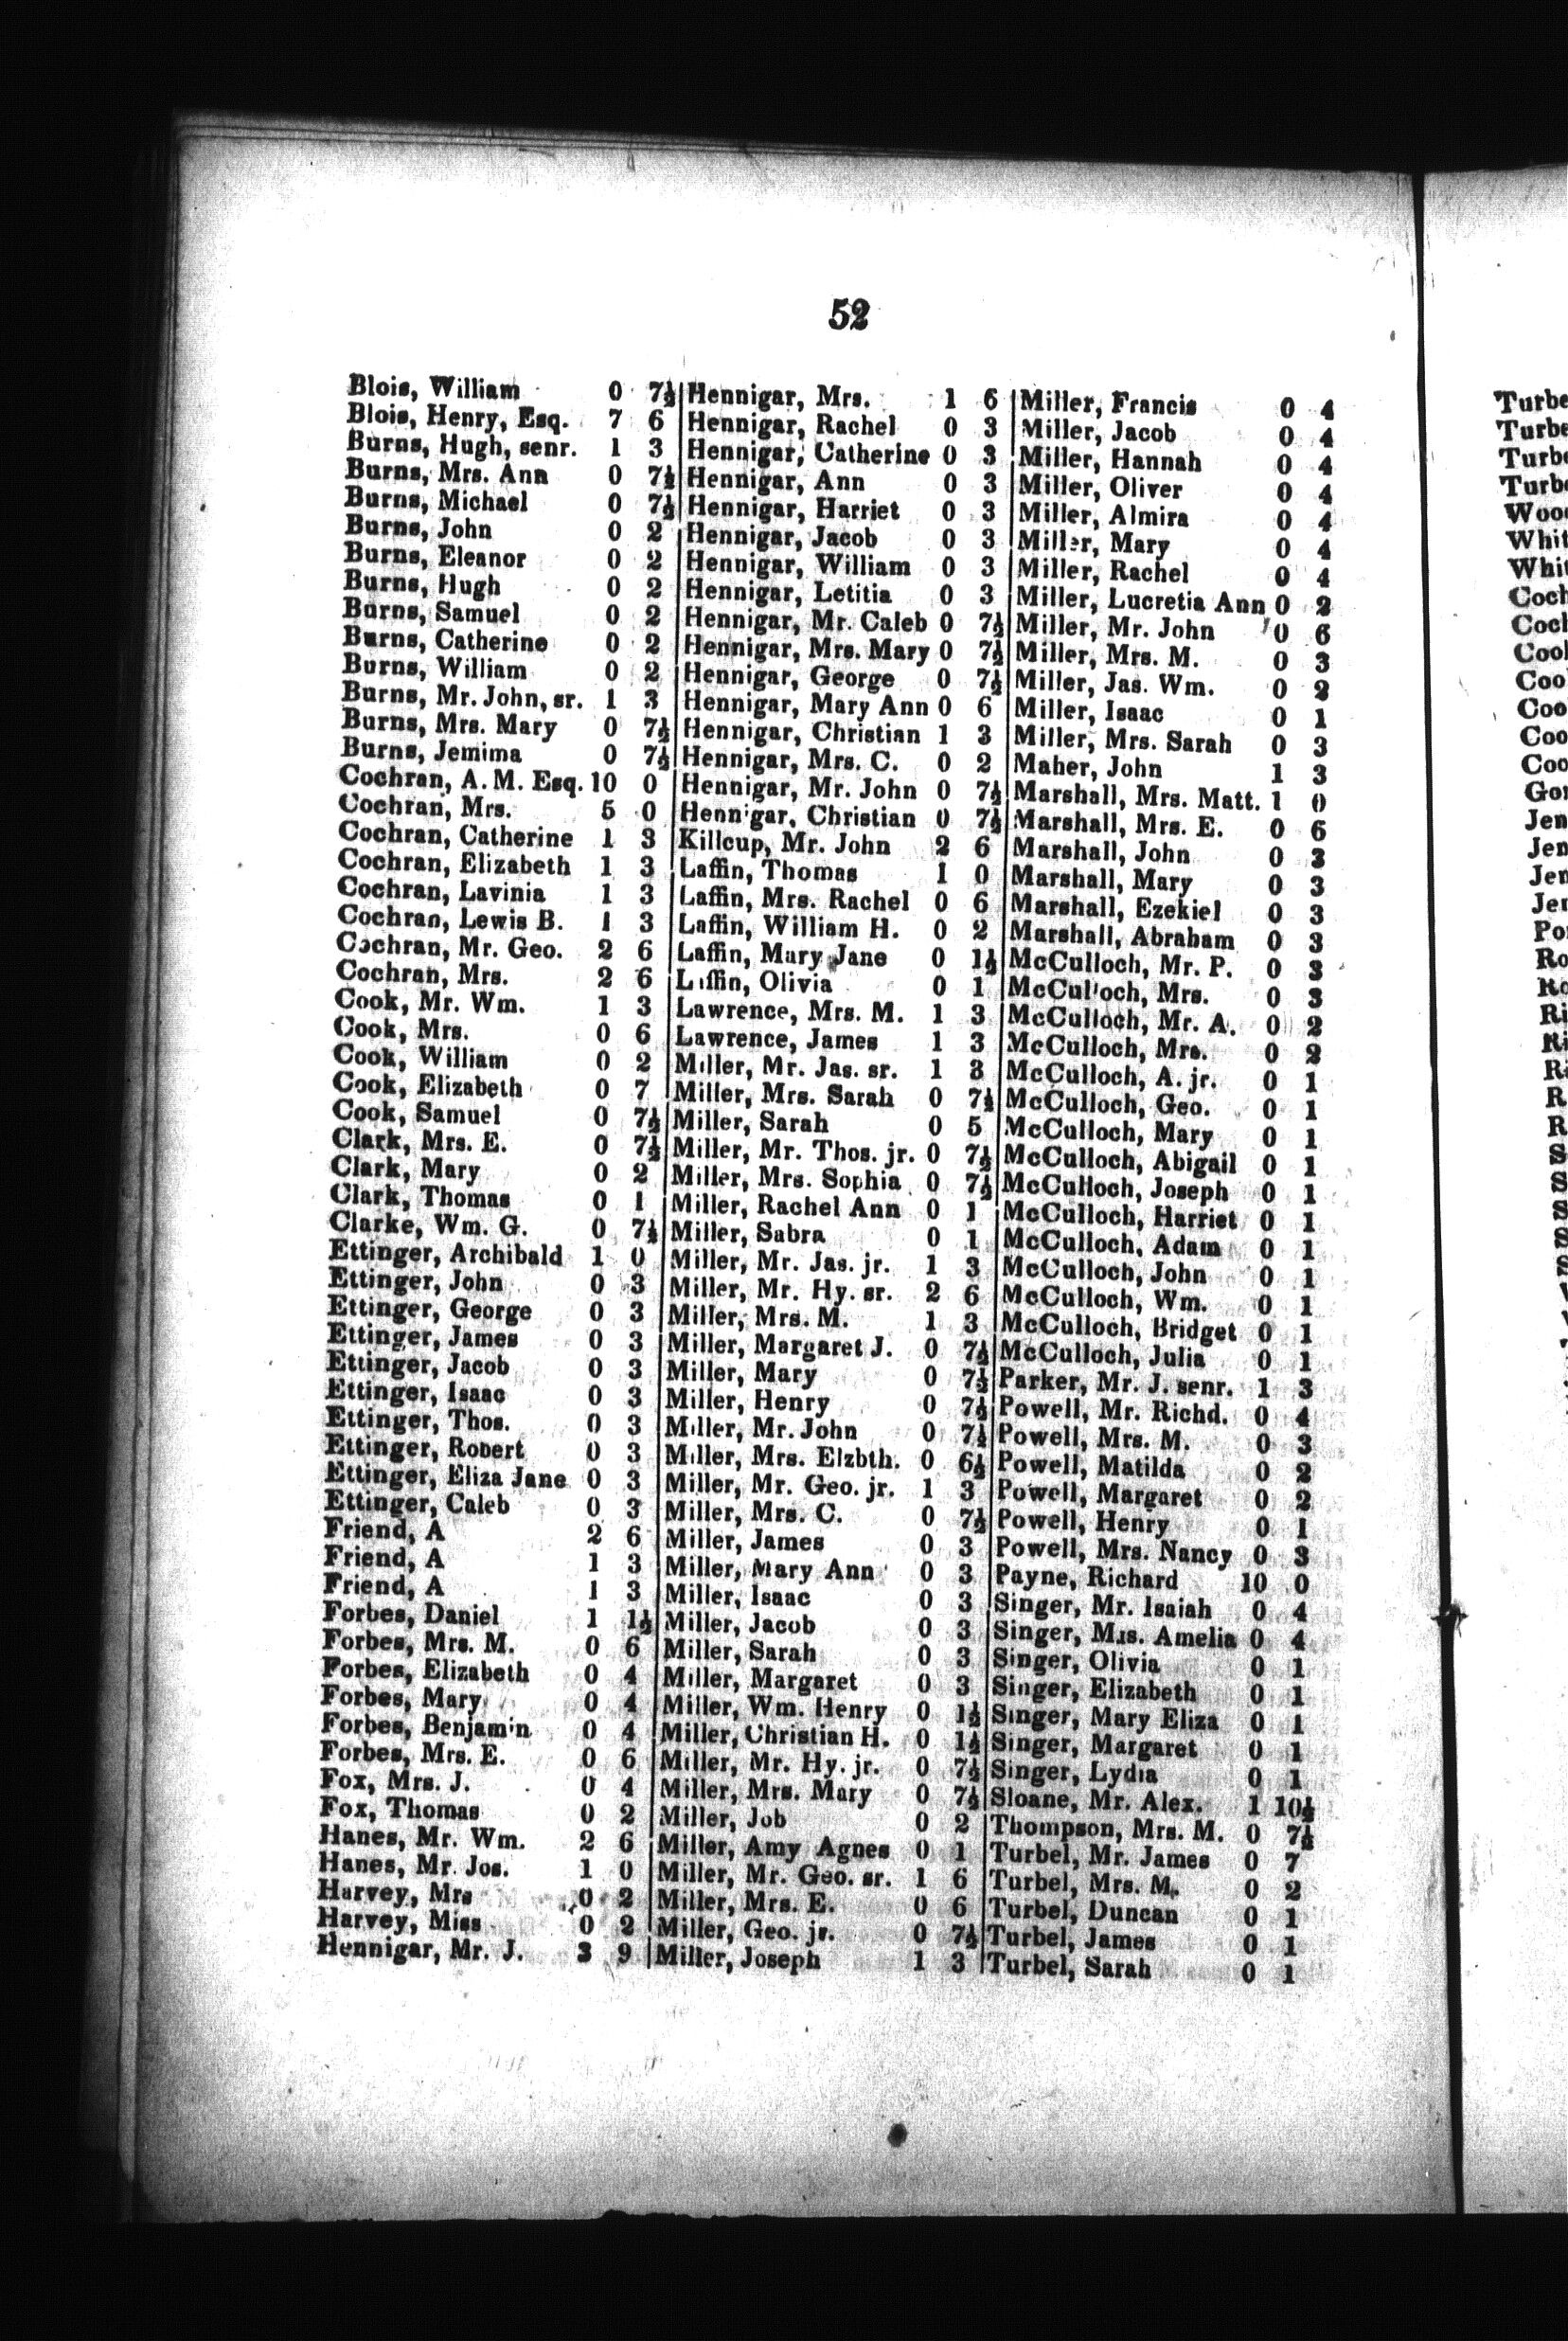 52
Blois, William 0 7½
Blois, Henry, Esq. 7 6
Burns, Hugh, senr. 1 3
Burns, Mrs. Ann 0 7½
Burns, Michael 0 7½
Burns, John 0 2
Burns, Eleanor 0 2
Burns, Hugh 0 2
Burns, Samuel 0 2
Burns, Catherine 0 2
Burns, William 0 2
Burns, Mr. John, sr. 1 3
Burns, Mrs. Mary 0 7½
Burns, Jemima 0 7½
Cochran, A. M. Esq. 10 0
Cochran, Mrs. 5 0
Cochran, Catherine 1 3
Cochran, Elizabeth 1 3
Cochran, Lavinia 1 3
Cochran, Lewis B. 1 3
Cochran, Mr. Geo. 2 6
Cochran, Mrs. 2 6
Cook, Mr. Wm. 1 3
Cook, Mrs. 0 6
Cook, William 0 2
Cook, Elizabeth 0 7
Cook, Samuel 0 7½
Clark, Mrs. E. 0 7½
Clark, Mary 0 2
Clark, Thomas 0 1
Clarke, Wm. G. 0 7½
Ettinger, Archibald 1 0
Ettinger, John 0 3
Ettinger, George 0 3
Ettinger, James 0 3
Ettinger, Jacob 0 3
Ettinger, Isaac 0 3
Ettinger, Thos. 0 3
Ettinger, Robert 0 3
Ettinger, Eliza Jane 0 3
Ettinger, Caleb 0 3
Friend, A 2 6
Friend, A 1 3
Friend, A 1 3
Forbes, Daniel 1 1½
Forbes, Mrs. M. 0 6
Forbes, Elizabeth 0 4
Forbes, Mary 0 4
Forbes, Benjamin 0 4
Forbes, Mrs. E. 0 6
Fox, Mrs. J. 0 4
Fox, Thomas 0 2
Hanes, Mr. Wm. 2 6
Hanes, Mr. Jos. 1 0
Harvey, Mrs 0 2
Harvey, Miss 0 2
Hennigar, Mr. J. 3 9
Hennigar, Mrs. 1 6
Hennigar, Rachel 0 3
Hennigar, Catherine 0 3
Hennigar, Ann 0 3
Hennigar, Harriet 0 3
Hennigar, Jacob 0 3
Hennigar, William 0 3
Hennigar, Letitia 0 3
Hennigar, Mr. Caleb 0 7½
Hennigar, Mrs. Mary 0 7½
Hennigar, George 0 7½
Hennigar, Mary Ann 0 6
Hennigar, Christian 1 3
Hennigar, Mrs. C. 0 2
Hennigar, Mr. John 0 7½
Hennigar, Christian 0 7½
Killcup, Mr. John 2 6
Laffin, Thomas 1 0
Laffin, Mrs. Rachel 0 6
Laffin, William H. 0 2
Laffin, Mary Jane 0 1½
Laffin, Olivia 0 1
Lawrence, Mrs. M. 1 3
Lawrence, James 1 3
Miller, Mr. Jas. sr. 1 3
Miller, Mrs. Sarah 0 7½
Miller, Sarah 0 5
Miller, Mr. Thos. jr. 0 7½
Miller, Mrs. Sophia 0 7½
Miller, Rachel Ann 0 1
Miller, Sabra 0 1
Miller, Mr. Jas. jr. 1 3
Miller, Mr. Hy. sr. 2 6
Miller, Mrs. M. 1 3
Miller, Margaret J. 0 7½
Miller, Mary 0 7½
Miller, Henry 0 7½
Miller, Mr. John 0 7½
Miller, Mrs. Elzbth. 0 6½
Miller, Mr. Geo. jr. 1 3
Miller, Mrs. C. 0 7½
Miller, James 0 3
Miller, Mary Ann 0 3
Miller, Isaac 0 3
Miller, Jacob 0 3
Miller, Sarah 0 3
Miller, Margaret 0 3
Miller, Wm. Henry 0 1½
Miller, Christian H. 0 1½
Miller, Mr. Hy. jr. 0 7½
Miller, Mrs. Mary 0 7½
Miller, Job 0 2
Miller, Amy Agnes 0 1
Miller, Mr. Geo. sr. 1 6
Miller, Mrs. E. 0 6
Miller, Geo. jr. 0 7½
Miller, Joseph 1 3
Miller, Francis 0 4
Miller, Jacob 0 4
Miller, Hannah 0 4
Miller, Oliver 0 4
Miller, Almira 0 4
Miller, Mary 0 4
Miller, Rachel 0 4
Miller, Lucretia Ann 0 2
Miller, Mr. John 0 6
Miller, Mrs. M. 0 3
Miller, Jas. Wm. 0 2
Miller, Isaac 0 1
Miller, Mrs. Sarah 0 3
Maher, John 1 3
Marshall, Mrs. Matt. 1 0
Marshall, Mrs. E. 0 6
Marshall, John 0 3
Marshall, Mary 0 3
Marshall, Ezekiel 0 3
Marshall, Abraham 0 3
McCulloch, Mr. P. 0 3
McCulloch, Mrs. 0 3
McCulloch, Mr. A. 0 2
McCulloch, Mrs. 0 2
McCulloch, A. jr. 0 1
McCulloch, Geo. 0 1
McCulloch, Mary 0 1
McCulloch, Abigail 0 1
McCulloch, Joseph 0 1
McCulloch, Harriet 0 1
McCulloch, Adam 0 1
McCulloch, John 0 1
McCulloch, Wm. 0 1
McCulloch, Bridget 0 1
McCulloch, Julia 0 1
Parker, Mr. J. senr. 1 3
Powell, Mr. Richd. 0 4
Powell, Mrs. M. 0 3
Powell, Matilda 0 2
Powell, Margaret 0 2
Powell, Henry 0 1
Powell, Mrs. Nancy 0 3
Payne, Richard 10 0
Singer, Mr. Isaiah 0 4
Singer, Mrs. Amelia 0 4
Singer, Olivia 0 1
Singer, Elizabeth 0 1
Singer, Mary Eliza 0 1
Singer, Margaret 0 1
Singer, Lydia 0 1
Sloane, Mr. Alex. 1 10½
Thompson, Mrs. M. 0 7½
Turbel, Mr. James 0 7
Turbel, Mrs. M. 0 2
Turbel, Duncan 0 1
Turbel, James 0 1
Turbel, Sarah 0 1